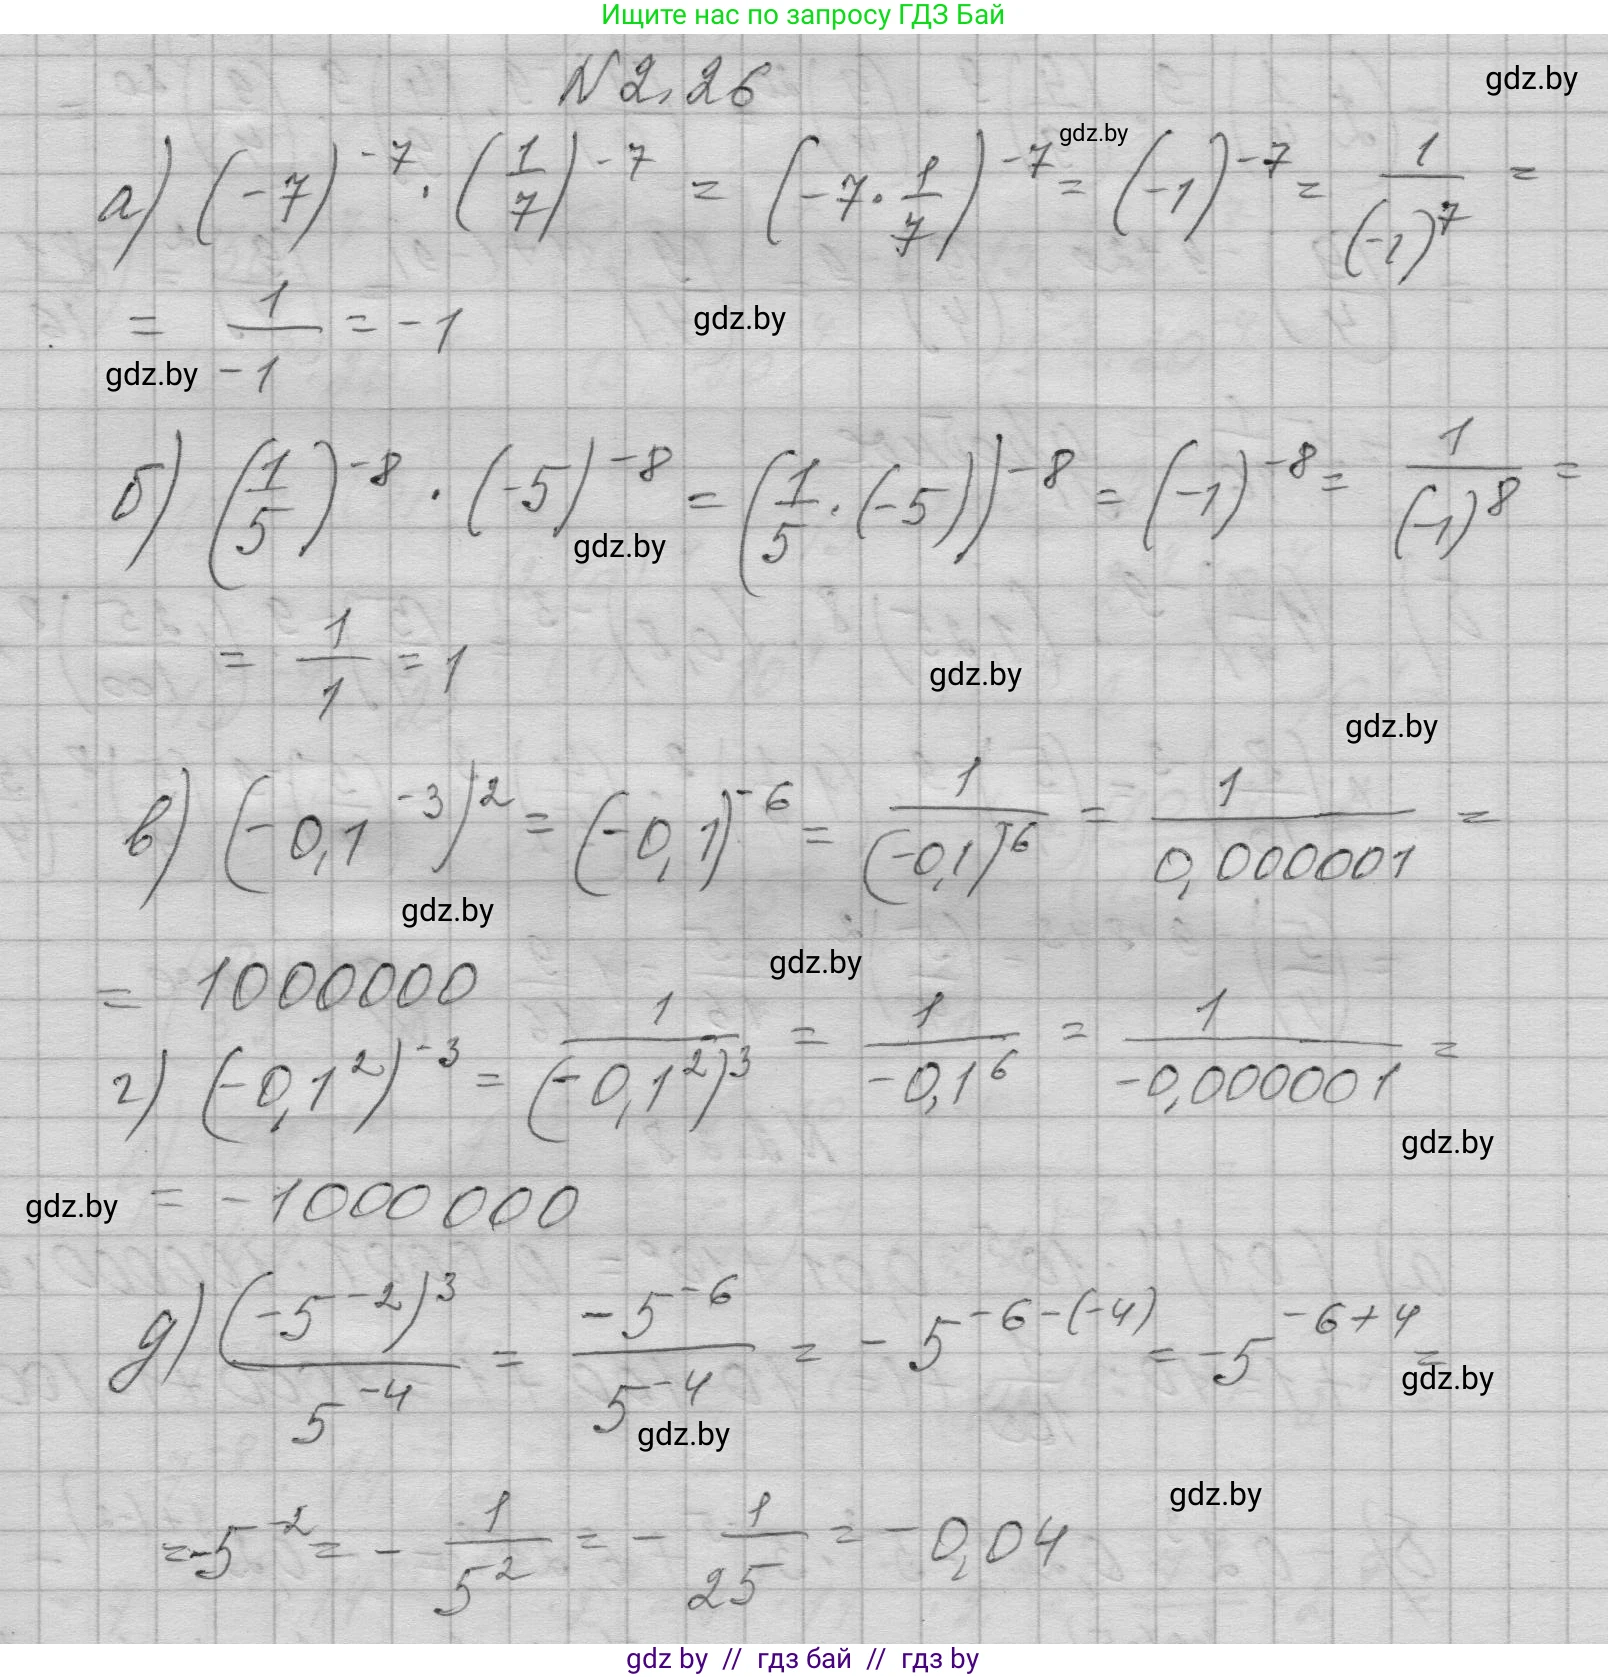 Ищите нас по запросу ГДЗ Бай
N 2.26
gdz.by
gdz.by
а) (-7)^-7 · (1/7)^-7 = (-7·1/7)^-7 = (-1)^-7 = 1/(-1)^7 =
= 1/-1 = -1
gdz.by
gdz.by
б) (1/5)^-8 · (-5)^-8 = (1/5·(-5))^-8 = (-1)^-8 = 1/(-1)^8 =
gdz.by
= 1/1 = 1
gdz.by
gdz.by
в) (-0,1^-3)^2 = (-0,1)^-6 = 1/(-0,1)^6 = 1/0,000001 =
gdz.by
gdz.by
= 1000000
г) (-0,1^2)^-3 = 1/(-0,1^2)^3 = 1/-0,1^6 = 1/-0,000001 =
gdz.by
gdz.by
= -1000000
д) (-5^-2)^3/5^-4 = -5^-6/5^-4 = -5^-6-(-4) = -5^-6+4 =
gdz.by
gdz.by
gdz.by
= -5^-2 = - 1/5^2 = - 1/25 = -0,04
gdz by // гдз бай // гдз by